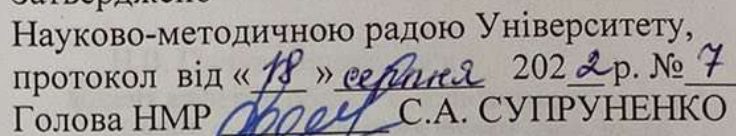 Затверджено
Науково-методичною радою Університету,
протокол від «18» серпня 2022 р. № 7
Голова НМР С.А. СУПРУНЕНКО